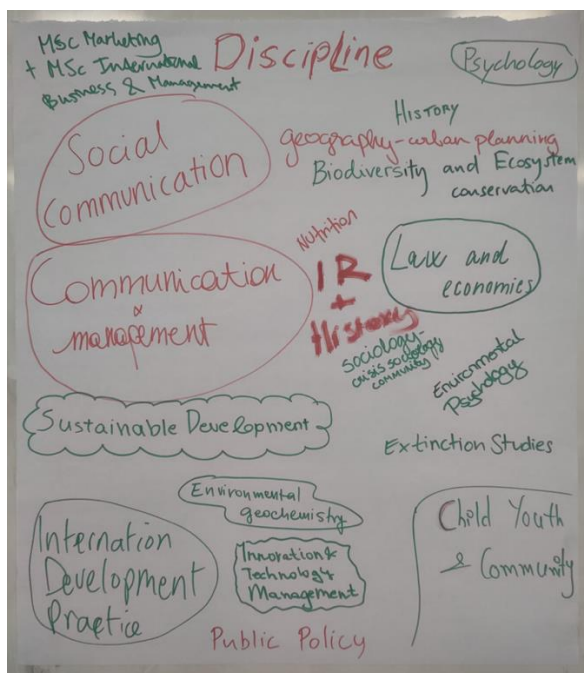 MSc Marketing
+ MSc International
Business & Management
Discipline
Psychology
Social
Communication
History
geography-urban planning
Biodiversity and Ecosystem
conservation
Nutrition
IR
+
History
Communication
&
management
Law and
economics
sociology-
crisis sociology
community
Environmental
Psychology
Sustainable Development
Extinction Studies
Environmental
geochemistry
Internation
Development
Practice
Innovation &
Technology
Management
Child Youth
& Community
Public Policy